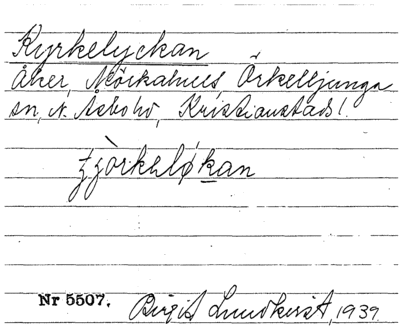 Kyrkelyckan
Åker, Mörkahus, Örkelljunga
sn, N. Åsbo hd, Kristianstads l.
Nr 5507. Birgit Lundkvist, 1939